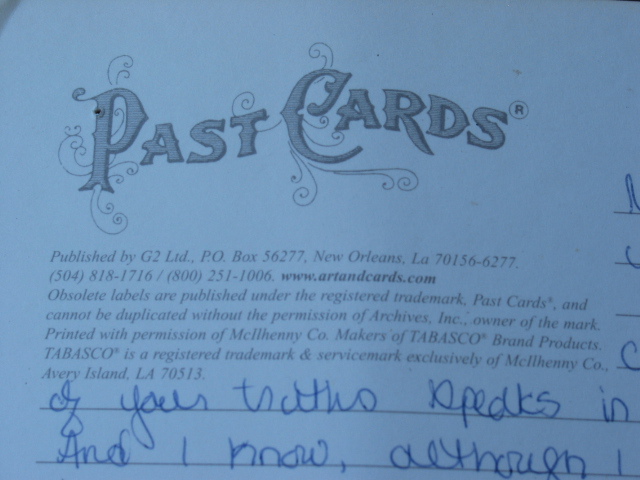 PAST CARDS®
Published by G2 Ltd., P.O. Box 56277, New Orleans, La 70156-6277.
(504) 818-1716 / (800) 251-1006. www.artandcards.com
Obsolete labels are published under the registered trademark, Past Cards®, and
cannot be duplicated without the permission of Archives, Inc., owner of the mark.
Printed with permission of McIlhenny Co. Makers of TABASCO® Brand Products.
TABASCO® is a registered trademark & servicemark exclusively of McIlhenny Co.,
Avery Island, LA 70513.
of your truths speaks in
And I know, although I